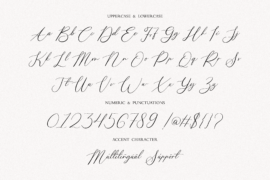 UPPERCASE & LOWERCASE
Aa Bb Cc Dd Ee Ff Gg Hh Ii Jj
Kk Ll Mm Nn Oo Pp Qq Rr Ss
Tt Uu Vv Ww Xx Yy Zz
NUMERIC & PUNCTUATIONS
0123456789
ACCENT CHARACTER
Multilingual Support